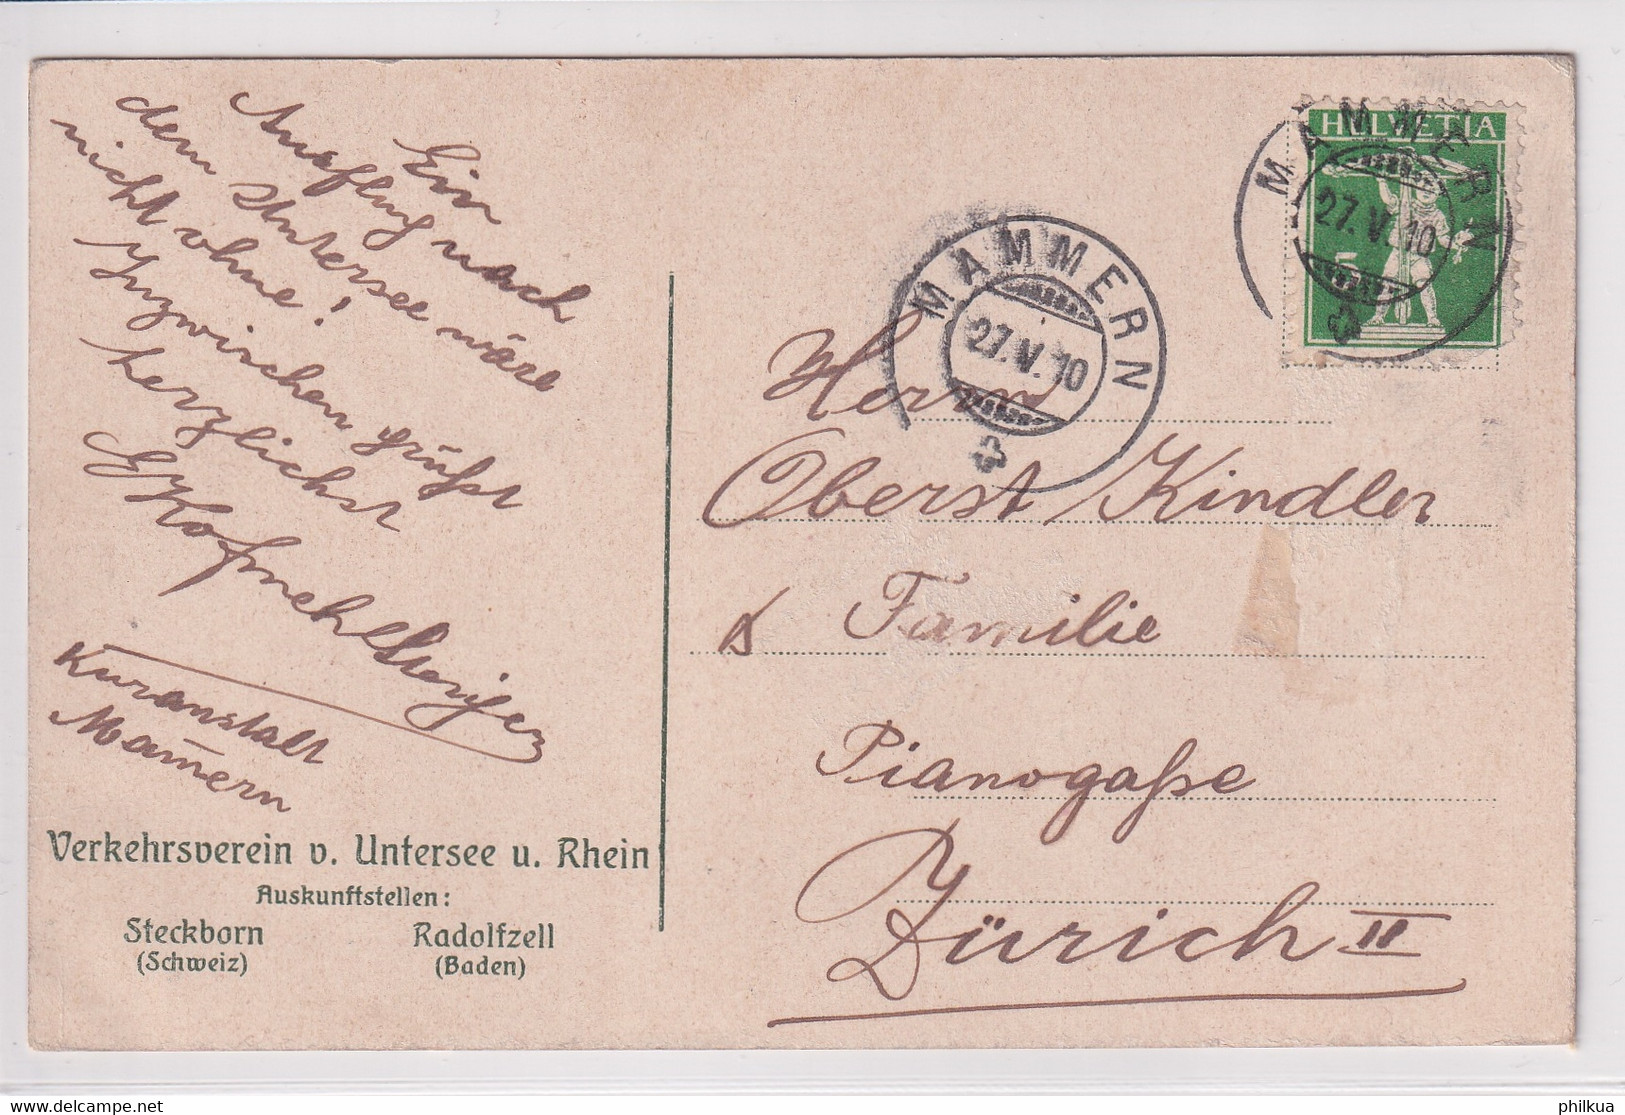 Ein
Ausflug nach
dem Untersee wäre
nicht ohne!
Inzwischen grüßt
herzlichst
Kuranstalt
Mam̅ern
Verkehrsverein v. Untersee u. Rhein
Auskunftstellen:
Steckborn
(Schweiz)
Radolfzell
(Baden)
HELVETIA
5
MAMMERN
27.V.10
MAMMERN
27.V.10
Herrn
Oberst Kindler
& Familie
Pianogaße
Zürich II
philkua
www.delcampe.net